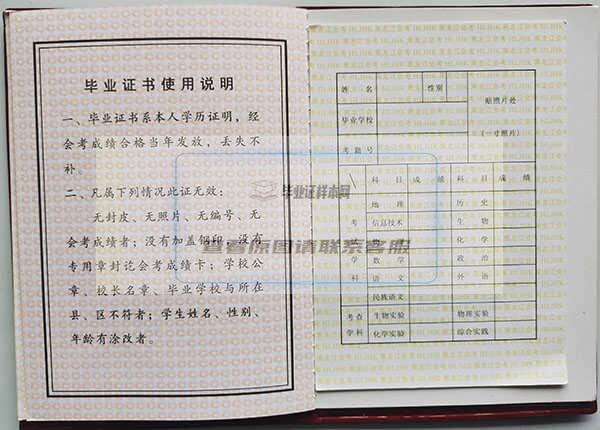 毕业证书使用说明
一、毕业证书系本人学历证明，经
会考成绩合格当年发放，丢失不
补。
二、凡属下列情况此证无效：
无封皮、无照片、无编号、无
会考成绩者；没有加盖钢印，没有
专用章封讫会考成绩卡；学校公
章、校长名章、毕业学校与所在
县、区不符者；学生姓名、性别、
年龄有涂改者。
毕业证样本网
查看原图请联系客服
姓 名 性别 贴照片处
毕业学校 (一寸照片)
考籍号
科目 成绩 科目 成绩
地理 历史
考 信息技术 生物
化学
学 数学 政治
科 语文 外语
民族语文
考查 生物实验 物理实验
学科 化学实验 综合实践